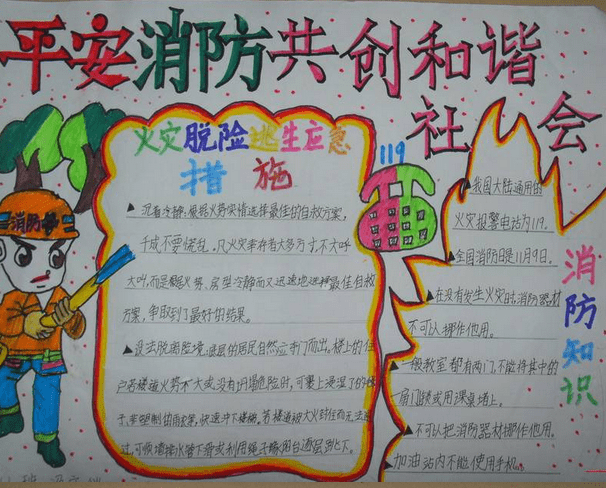 平安消防共创和谐
社会
火灾脱险逃生应急
措施
119
消防
沉着冷静,根据火势实情选择最佳的自救方案,
千成不要慌乱。凡火幸存者大多方寸,不大呼
大叫,而是根据火势、房型冷静而又迅速地选择最佳自救
方案,争取到了最好的结果。
设法脱离险境:底层的居民自然应夺门而出,楼上的住
户若楼道火势不大或没有坍塌危险时,可裹上浸湿了的
快速冲下楼梯。若楼道被大火封住而无法通
过,可顺墙排水管下滑或利用绳子缘阳台逐层跳下。
我国大陆通用的
火灾报警电话为119。
全国消防日是11月9日。
在没有发生火灾时,消防器材
不可以挪作他用。
一般教室都有两门,不能将其中的
一扇门锁或用课桌堵上。
不可以把消防器材挪作他用。
加油站内不能使用手机。
消防知识